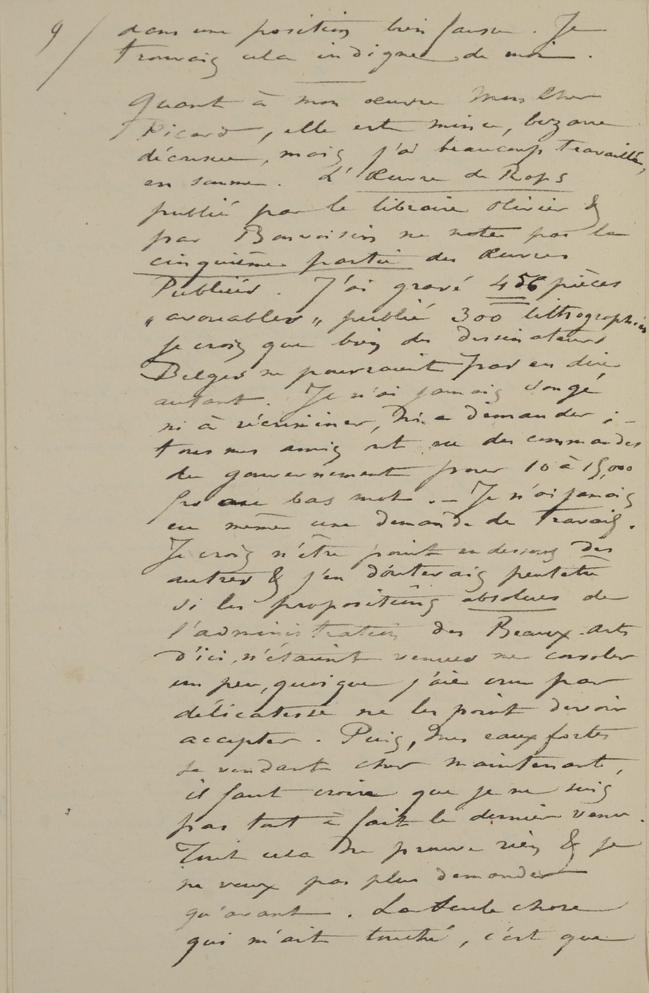 9/ dans une position bien fausse. Je
trouvais cela indigne de moi.
Quant à mon œuvre mon cher
Picard, elle est mince, bizarre
décousue, mais j'ai beaucoup travaillé,
en somme. L'Œuvre de Rops
publié par le libraire Olivier &
par ne note pas la
cinquième partie des Œuvres
Publiées. J'ai gravé 456 pièces
„avouables„ publié 300 lithographies
je crois que bien des dessinateurs
Belges ne pourraient pas en dire
autant. Je n'ai jamais songé
ni à récriminer, ni a demander ; –
tous mes amis ont eu des commandes
du gouvernement pour 10 à 15,000
frs au bas mot. – Je n'ai jamais
eu même une demande de travail.
Je crois n'être point en dessous des
autres & j'en douterais peutêtre
si les propositions absolues de
l'administration des Beaux-arts
d'ici, n'étaient venues me consoler
un peu, quoique j'aie cru par
délicatesse ne les point devoir
accepter. Puis, mes eaux fortes
se vendant cher maintenant,
il faut croire que je ne suis
pas tout à fait le dernier venu.
Tout cela ne prouve rien & je
ne veux pas plus demander
qu'avant. La seule chose
qui m'ait touché, c'est que